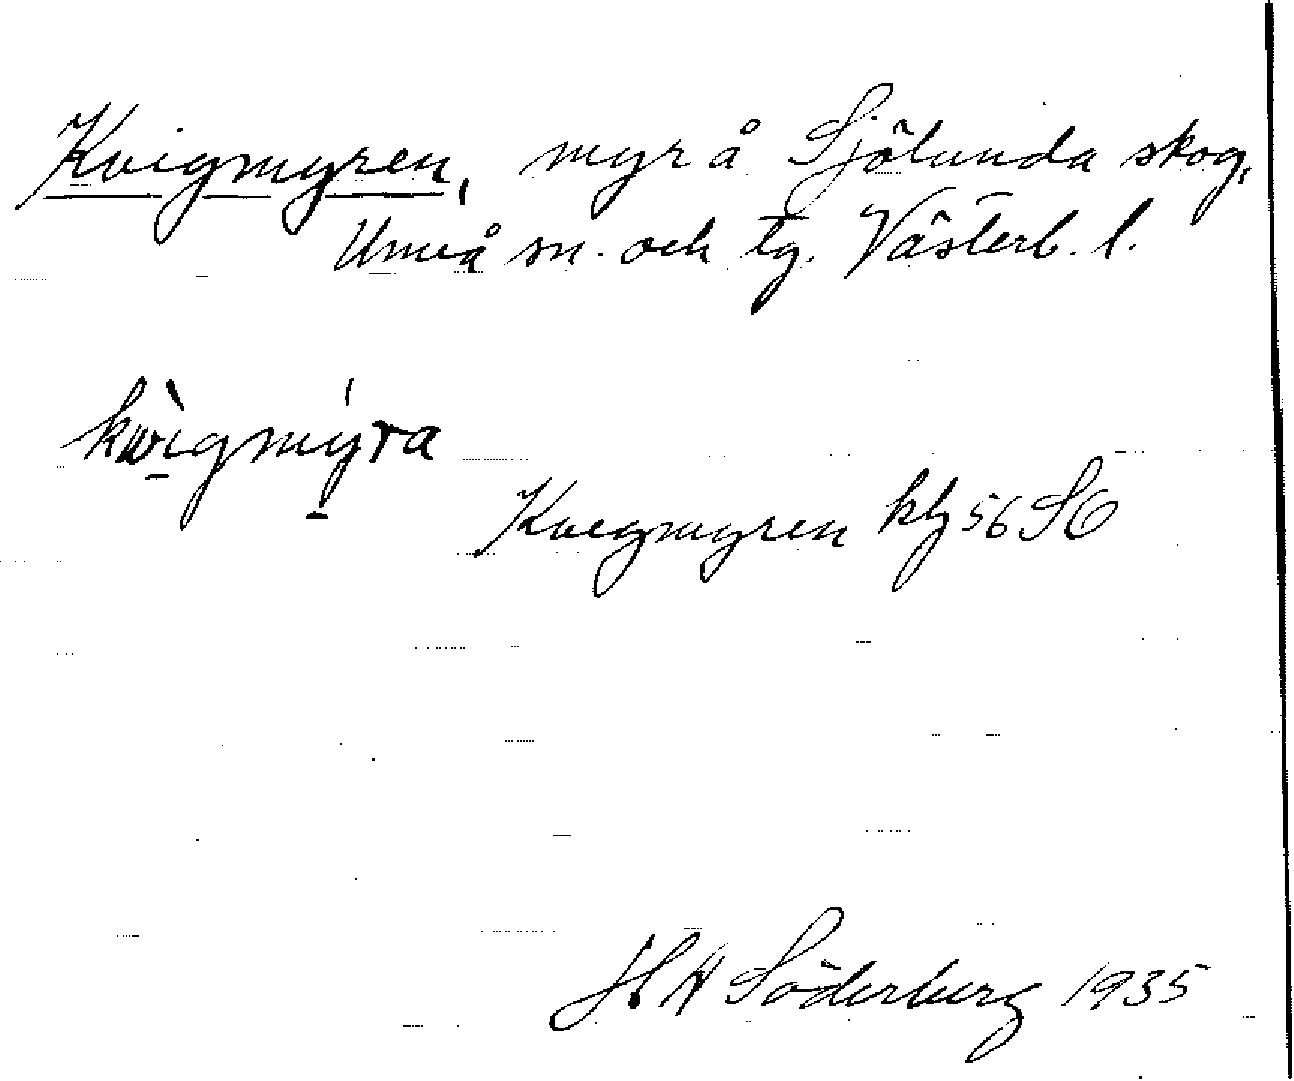 Kvigmyren, myr å Sjölunda skog,
Umeå sn. och tg. Västerb. l.
kwìgmýra
Kvigmyren kbl 56 SO
H Söderberg 1935